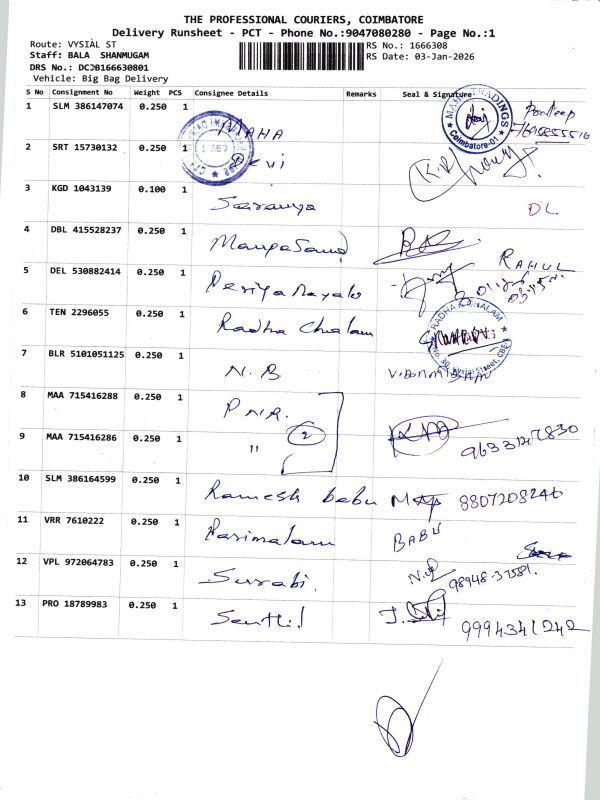 THE PROFESSIONAL COURIERS, COIMBATORE
Delivery Runsheet - PCT - Phone No.:9047080280 - Page No.:1
Route: VYSIAL ST
RS No.: 1666308
Staff: BALA SHANMUGAM
RS Date: 03-Jan-2026
DRS No.: DCJB166630801
Vehicle: Big Bag Delivery
S No Consignment No Weight PCS Consignee Details Remarks Seal & Signature
1 SLM 386147074 0.250 1 MAHA
Coimbatore-01
2 SRT 15730132 0.250 1 Devi
3 KGD 1043139 0.100 1 Saranya DL
4 DBL 415528237 0.250 1
5 DEL 530882414 0.250 1 RAHUL
6 TEN 2296055 0.250 1 Radha Chalam
7 BLR 5101051125 0.250 1 N.B
8 MAA 715416288 0.250 1 P.N.R.
2
9 MAA 715416286 0.250 1 "
10 SLM 386164599 0.250 1 Ramesh babu 8807208246
11 VRR 7610222 0.250 1 Parimalam BABU
12 VPL 972064783 0.250 1 Surabi. 98948-37581.
13 PRO 18789983 0.250 1 Senthil 9994341242